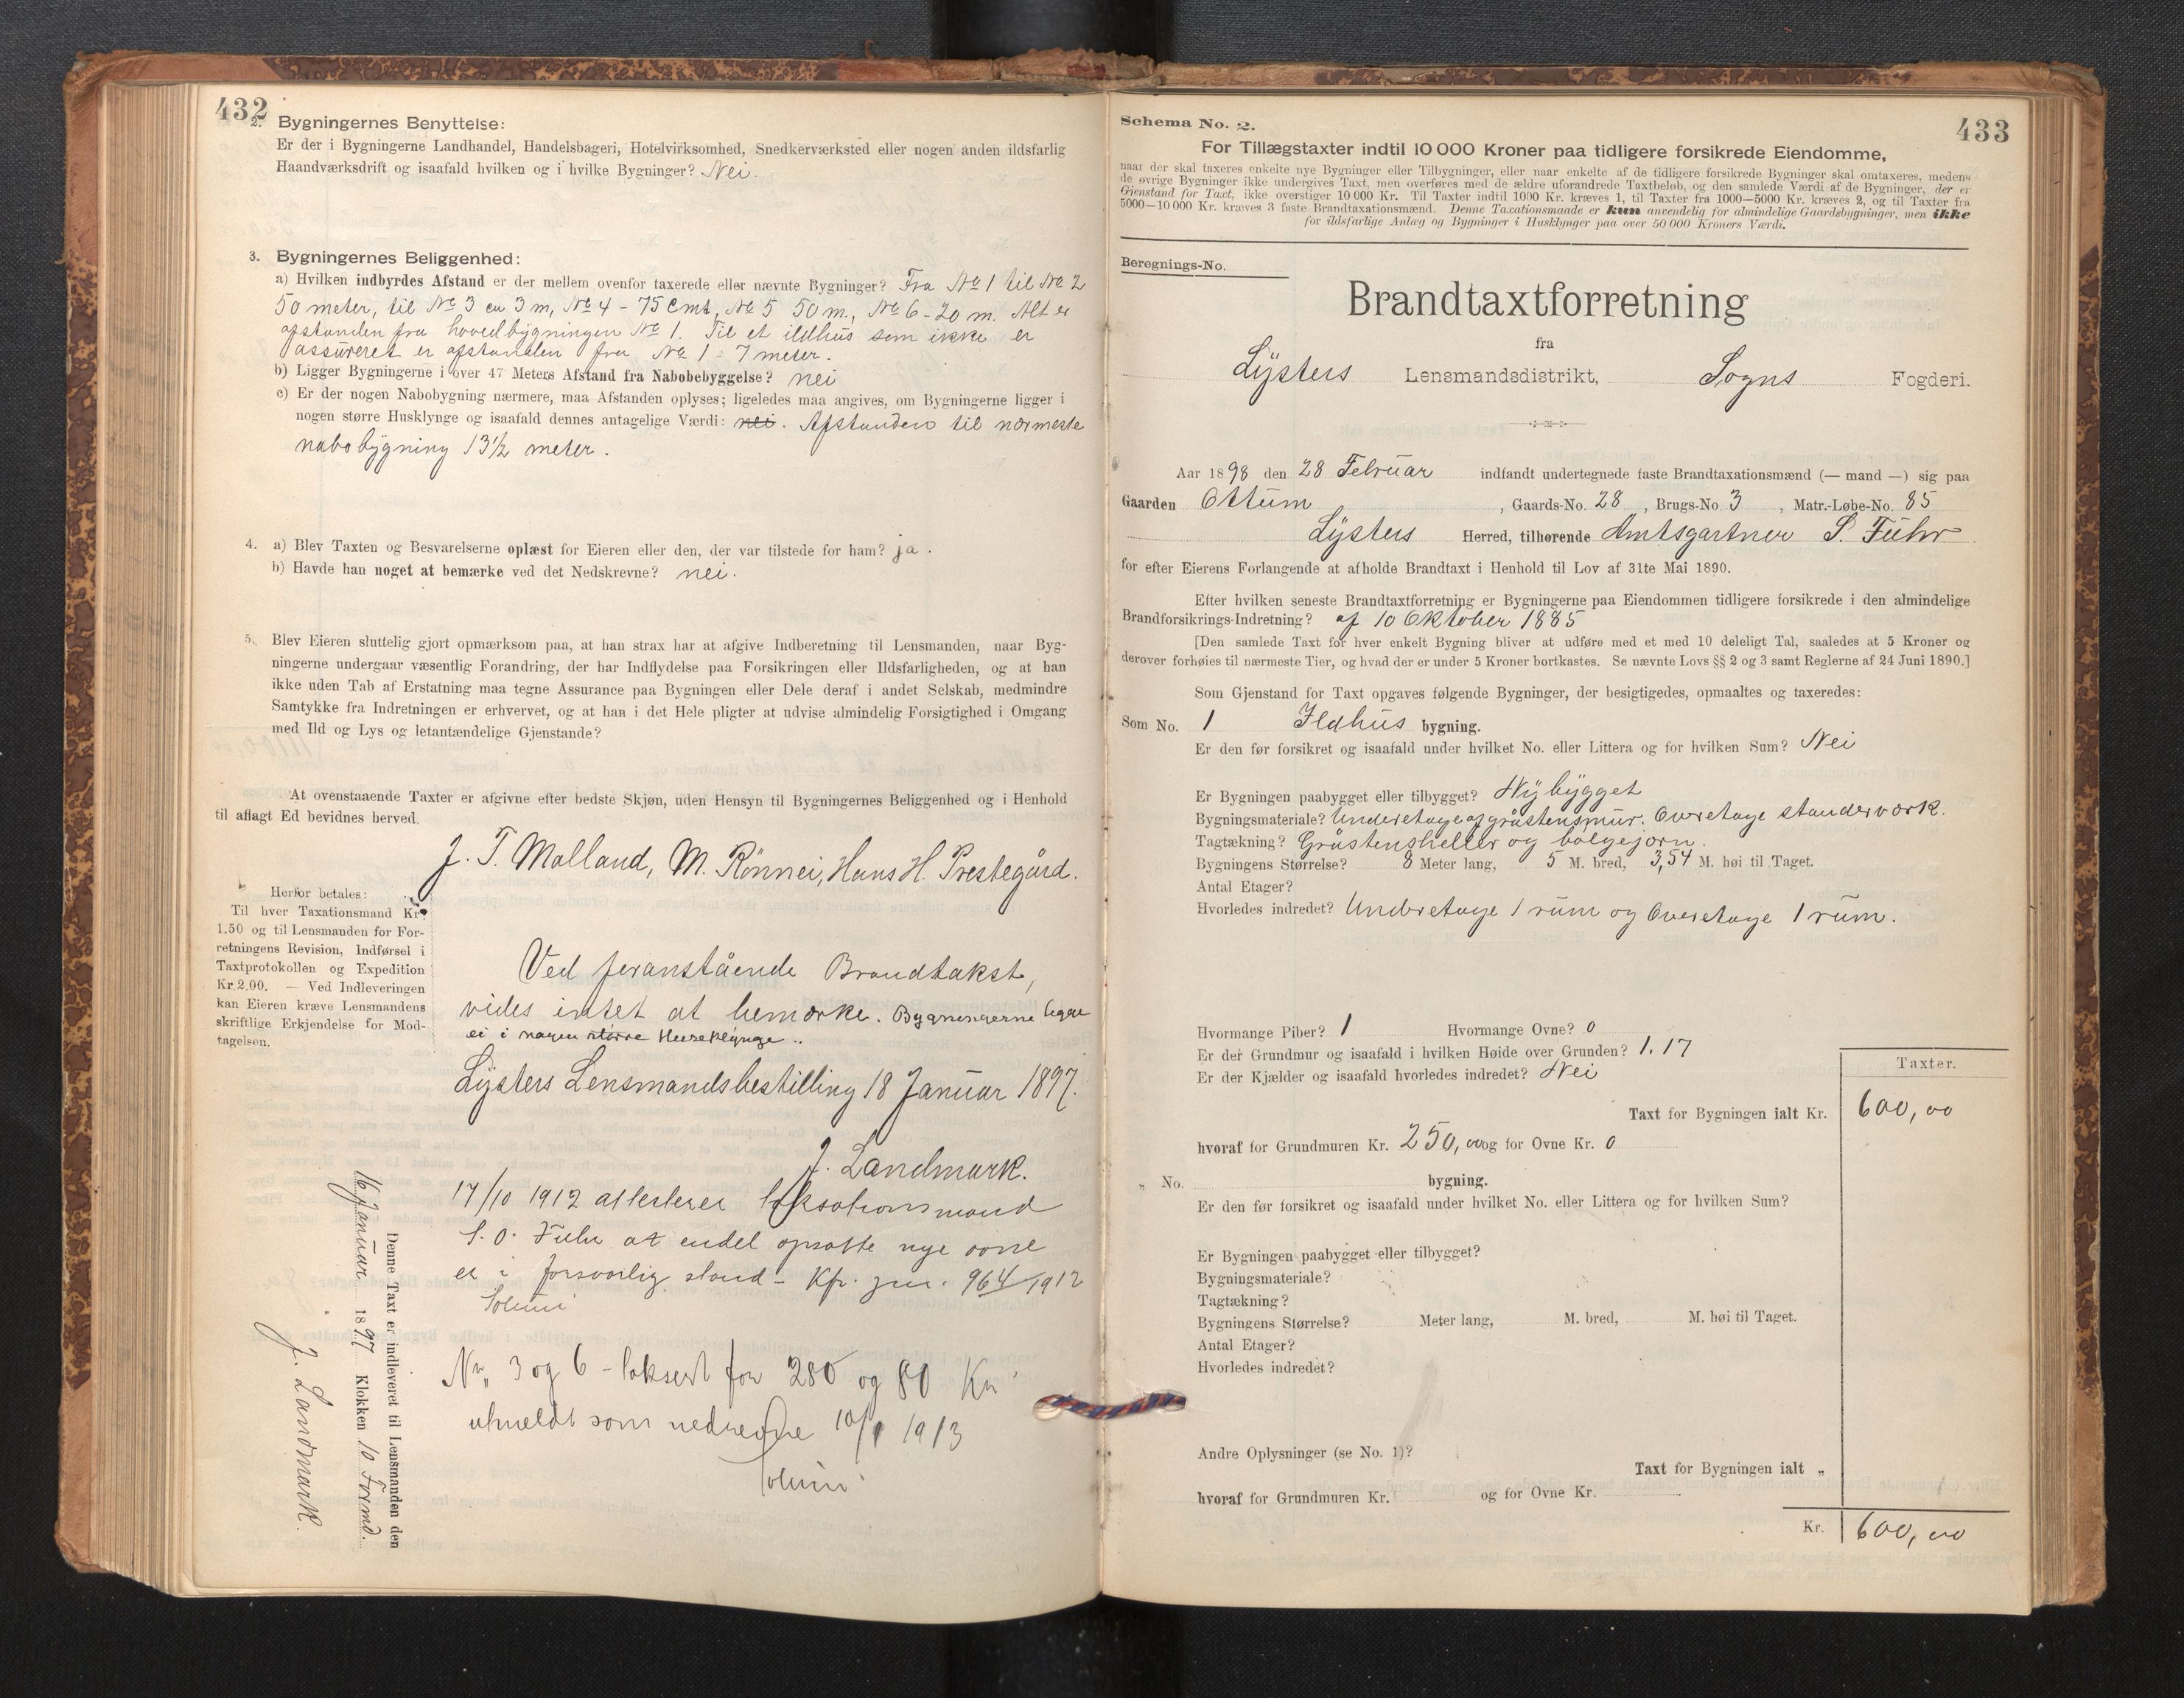 432
2. Bygningernes Benyttelse:
Er der i Bygningerne Landhandel, Handelsbageri, Hotelvirksomhed, Snedkerværksted eller nogen anden ildsfarlig
Haandværksdrift og isaafald hvilken og i hvilke Bygninger? Nei.
3. Bygningernes Beliggenhed:
a) Hvilken indbyrdes Afstand er der mellem ovenfor taxerede eller nævnte Bygninger? Fra No 1 til No 2
50 meter, til No 3 ca 3 m, No 4 - 75 Cmt, No 5 50 m., No 6 - 20 m. Alt er
afstanden fra hovedbygningen No 1. Til et ildhus som ikke er
assureret er afstanden fra No 1 - 7 meter.
b) Ligger Bygningerne i over 47 Meters Afstand fra Nabobebyggelse? nei
c) Er der nogen Nabobygning nærmere, maa Afstanden oplyses; ligeledes maa angives, om Bygningerne ligger i
nogen større Husklynge og isaafald dennes antagelige Værdi: nei. Afstanden til nærmeste
nabobygning 13½ meter.
4. a) Blev Taxten og Besvarelserne oplæst for Eieren eller den, der var tilstede for ham? ja.
b) Havde han noget at bemærke ved det Nedskrevne? nei.
5. Blev Eieren sluttelig gjort opmærksom paa, at han strax har at afgive Indberetning til Lensmanden, naar Byg-
ningerne undergaar væsentlig Forandring, der har Indflydelse paa Forsikringen eller Ildsfarligheden, og at han
ikke uden Tab af Erstatning maa tegne Assurance paa Bygningen eller Dele deraf i andet Selskab, medmindre
Samtykke fra Indretningen er erhvervet, og at han i det Hele pligter at udvise almindelig Forsigtighed i Omgang
med Ild og Lys og letantændelige Gjenstande?
At ovenstaaende Taxter er afgivne efter bedste Skjøn, uden Hensyn til Bygningernes Beliggenhed og i Henhold
til aflagt Ed bevidnes herved.
J. T. Molland, M. Rönnei, Hans H. Prestegård.
Herfor betales:
Til hver Taxationsmand Kr.
1.50 og til Lensmanden for For-
retningens Revision, Indførsel i
Taxtprotokollen og Expedition
Kr. 2.00. — Ved Indleveringen
kan Eieren kræve Lensmandens
skriftlige Erkjendelse for Mod-
tagelsen.
Ved foranstående Brandtakst,
vides intet at bemærke. Bygningerne ligge
ei i nogen større Huseklynge..
Lysters Lensmandsbestilling 18 Januar 1897.
J. Landmark.
17/10 1912 attesterer taksationsmand
S. O. Fuhr at endel opsatte nye ovne
er i forsvarlig stand - Kfr. jnr. 964/1912
Nr. 3 og 6 - taksert for 280 og 80 Kr
utmeldt som nedrevne 10/1 1913
Denne Taxt er indleveret til Lensmanden den
16 Januar 1897 Klokken 10 Formd.
J. Landmark.
433
Schema No. 2.
For Tillægstaxter indtil 10 000 Kroner paa tidligere forsikrede Eiendomme,
naar der skal taxeres enkelte nye Bygninger eller Tilbygninger, eller naar enkelte af de tidligere forsikrede Bygninger skal omtaxeres, medens
de øvrige Bygninger ikke undergives Taxt, men overføres med de ældre uforandrede Taxtbeløb, og den samlede Værdi af de Bygninger, der er
Gjenstand for Taxt, ikke overstiger 10 000 Kr. Til Taxter indtil 1000 Kr. kræves 1, til Taxter fra 1000—5000 Kr. kræves 2, og til Taxter fra
5000—10 000 Kr. kræves 3 faste Brandtaxationsmænd. Denne Taxationsmaade er kun anvendelig for almindelige Gaardsbygninger, men ikke
for ildsfarlige Anlæg og Bygninger i Husklynger paa over 50 000 Kroners Værdi.
Beregnings-No.
Brandtaxtforretning
fra
Lysters Lensmandsdistrikt, Sogns Fogderi.
Aar 1898 den 28 Februar indfandt undertegnede faste Brandtaxationsmænd (— mand —) sig paa
Gaarden Ottum, Gaards-No. 28, Brugs-No. 3, Matr.-Løbe-No. 85
Lysters Herred, tilhørende Amtsgartner S. Fuhr
for efter Eierens Forlangende at afholde Brandtaxt i Henhold til Lov af 31te Mai 1890.
Efter hvilken seneste Brandtaxtforretning er Bygningerne paa Eiendommen tidligere forsikrede i den almindelige
Brandforsikrings-Indretning? af 10 Oktober 1885
[Den samlede Taxt for hver enkelt Bygning bliver at udføre med et med 10 deleligt Tal, saaledes at 5 Kroner og
derover forhøies til nærmeste Tier, og hvad der er under 5 Kroner bortkastes. Se nævnte Lovs §§ 2 og 3 samt Reglerne af 24 Juni 1890.]
Som Gjenstand for Taxt opgaves følgende Bygninger, der besigtigedes, opmaaltes og taxeredes:
Som No. 1 Ildhus bygning.
Er den før forsikret og isaafald under hvilket No. eller Littera og for hvilken Sum? Nei
Er Bygningen paabygget eller tilbygget? Nybygget
Bygningsmateriale? Underetage af gråstensmur. Overetage standerværk.
Tagtækning? Gråstensheller og bølgejern.
Bygningens Størrelse? 8 Meter lang, 5 M. bred, 3,54 M. høi til Taget.
Antal Etager?
Hvorledes indredet? Underetage 1 rum og Overetage 1 rum.
Hvormange Piber? 1 Hvormange Ovne? 0
Er der Grundmur og isaafald i hvilken Høide over Grunden? 1.17
Er der Kjælder og isaafald hvorledes indredet? Nei
Taxter.
Taxt for Bygningen ialt Kr. 600,00
hvoraf for Grundmuren Kr. 250,00 og for Ovne Kr. 0
„ No. bygning.
Er den før forsikret og isaafald under hvilket No. eller Littera og for hvilken Sum?
Er Bygningen paabygget eller tilbygget?
Bygningsmateriale?
Tagtækning?
Bygningens Størrelse? Meter lang, M. bred, M. høi til Taget.
Antal Etager?
Hvorledes indredet?
Andre Oplysninger (se No. 1)?
Taxt for Bygningen ialt „
hvoraf for Grundmuren Kr. og for Ovne Kr.
Kr. 600,00